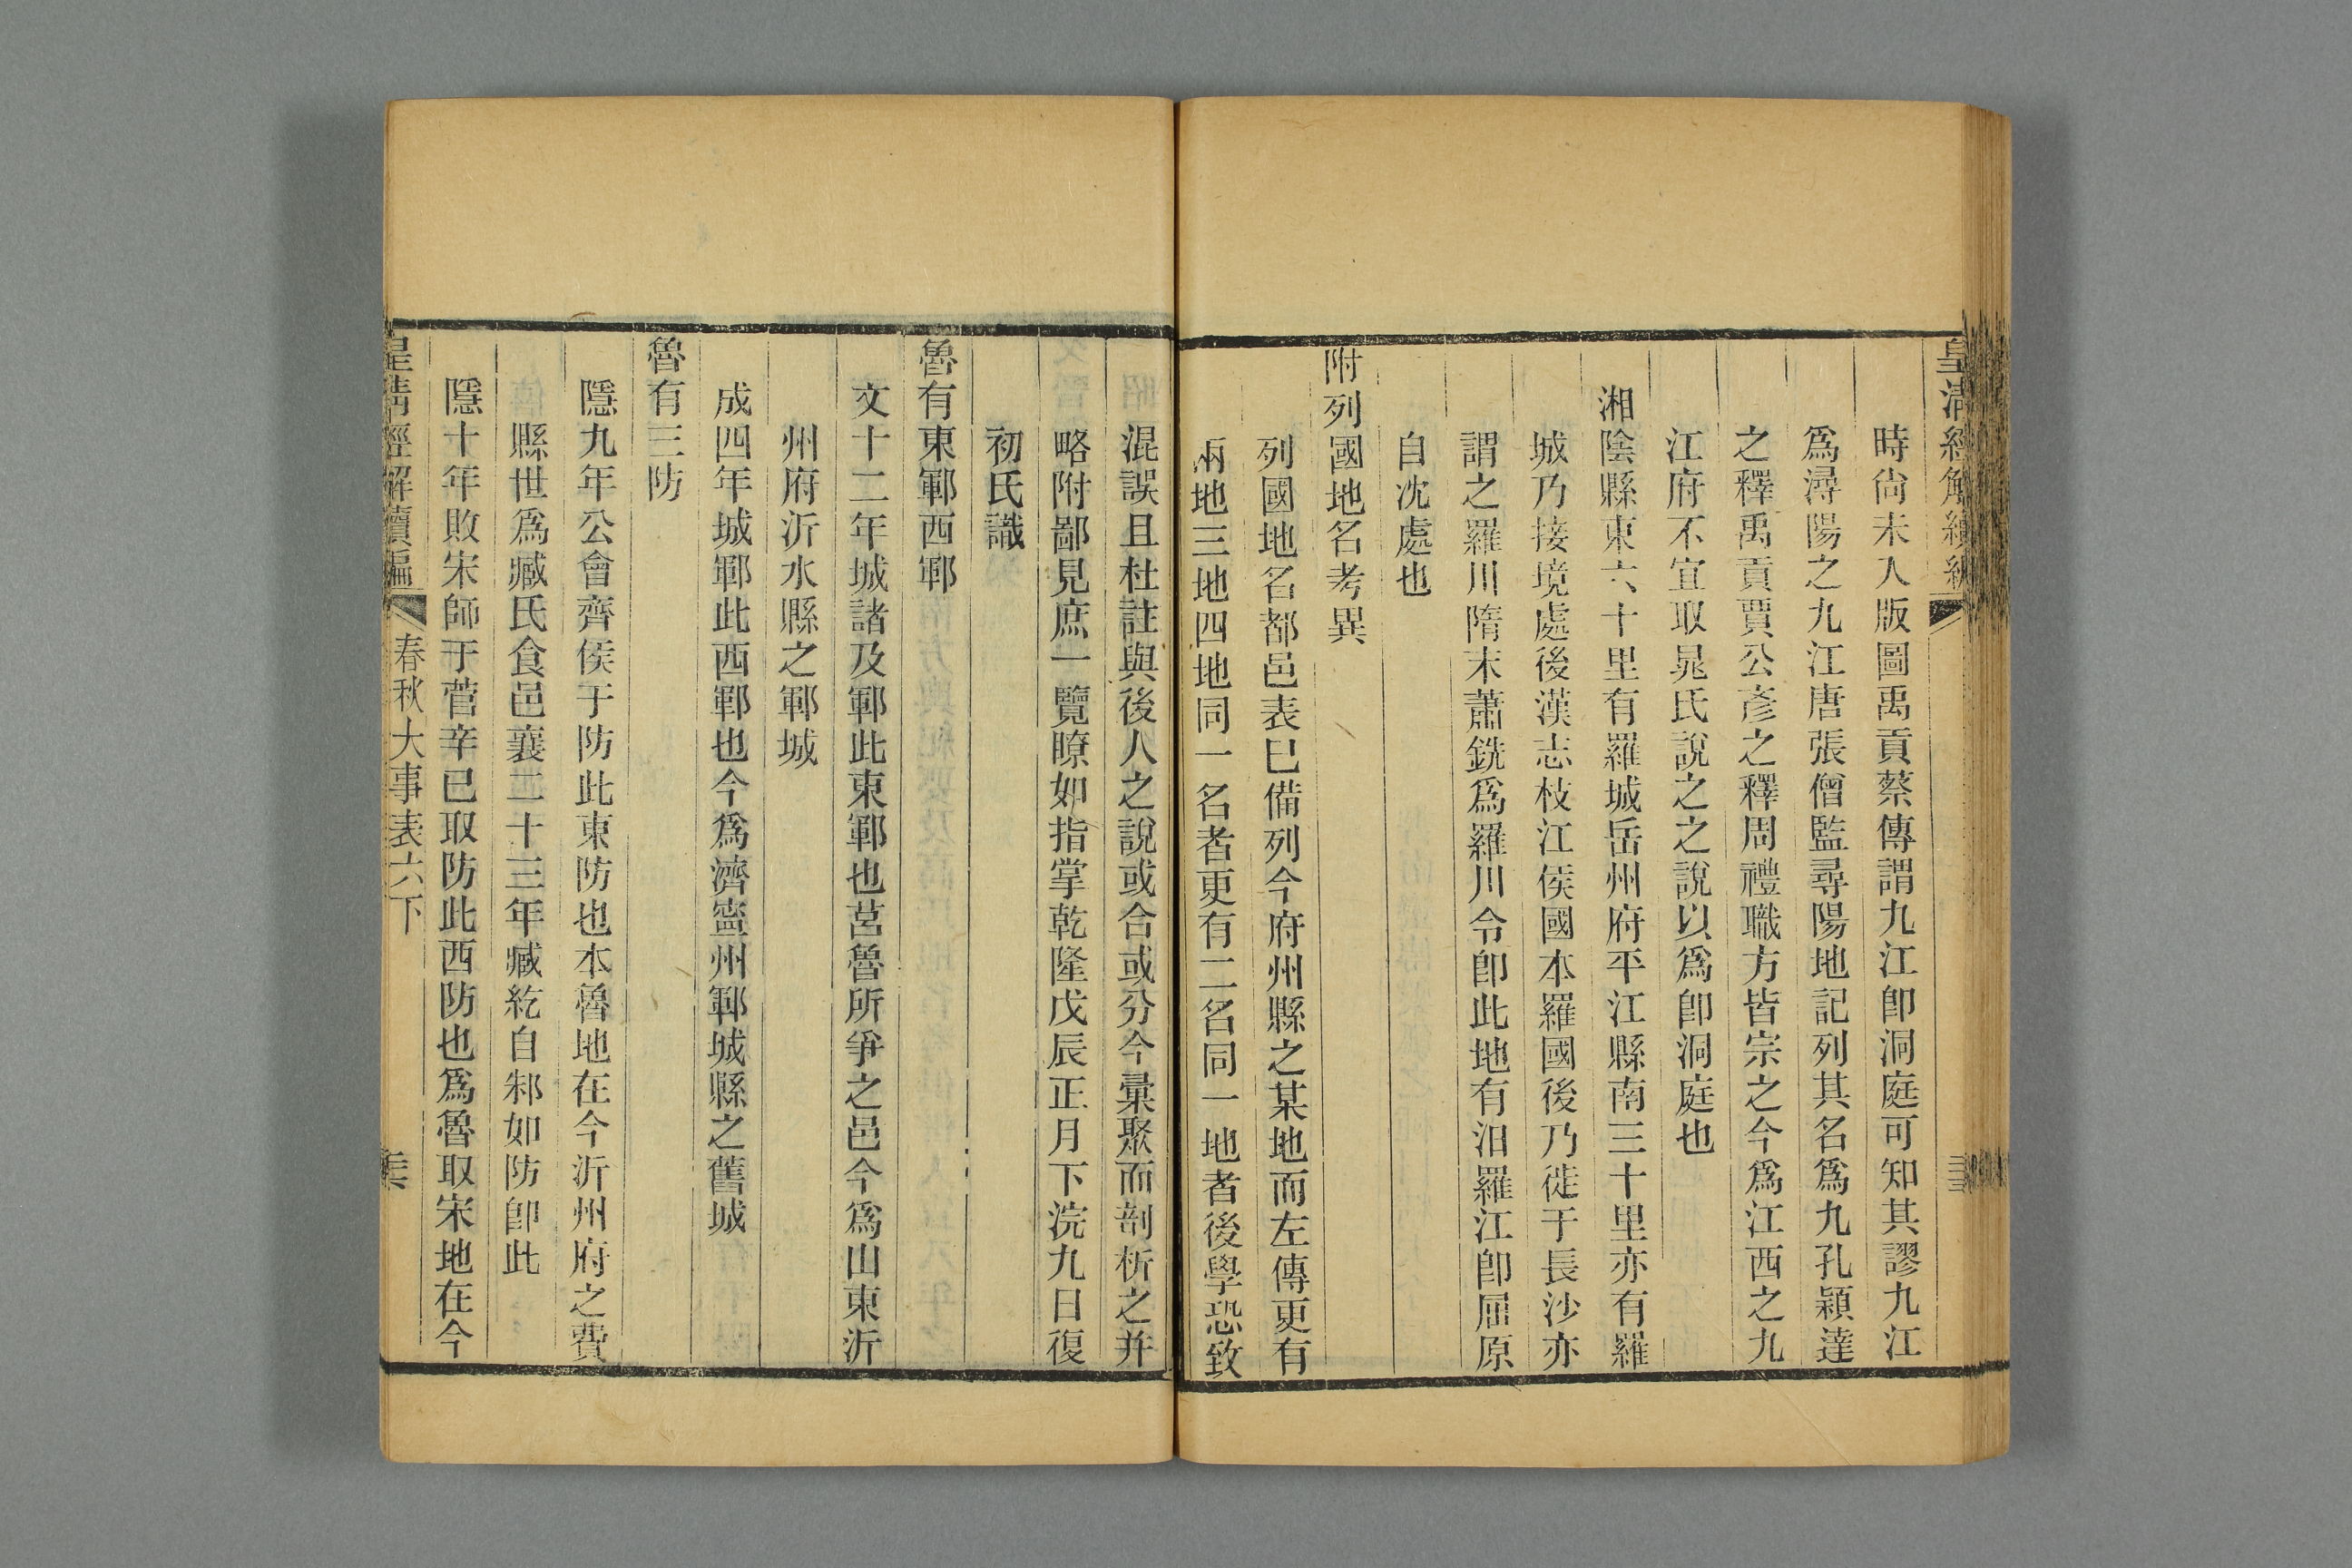 皇清經解續編
時尙未入版圖禹貢蔡傳謂九江卽洞庭可知其謬九江
爲潯陽之九江唐張僧監尋陽地記列其名爲九孔穎達
之釋禹貢賈公彥之釋周禮職方皆宗之今爲江西之九
江府不宜取晁氏說之之說以爲卽洞庭也
湘陰縣東六十里有羅城岳州府平江縣南三十里亦有羅
城乃接境處後漢志枝江侯國本羅國後乃徙于長沙亦
謂之羅川隋末蕭銑爲羅川令卽此地有汨羅江卽屈原
自沈處也
附列國地名考異
列國地名都邑表已備列今府州縣之某地而左傳更有
兩地三地四地同一名者更有二名同一地者後學恐致
混誤且杜註與後人之說或合或分今彙聚而剖析之并
略附鄙見庶一覽瞭如指掌乾隆戊辰正月下浣九日復
初氏識
魯有東鄆西鄆
文十二年城諸及鄆此東鄆也莒魯所爭之邑今爲山東沂
州府沂水縣之鄆城
成四年城鄆此西鄆也今爲濟寧州鄆城縣之舊城
魯有三防
隱九年公會齊侯于防此東防也本魯地在今沂州府之費
縣世爲臧氏食邑襄二十三年臧紇自邾如防卽此
隱十年敗宋師于菅辛巳取防此西防也爲魯取宋地在今
皇淸經解續編 春秋大事表六下